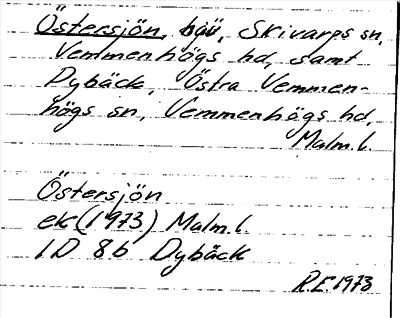 Östersjön, hav, Skivarps sn,
Vemmenhögs hd, samt
Dybäck, Östra Vemmen-
högs sn, Vemmenhögs hd,
Malm.l.
Östersjön
ek (1973) Malm.l.
1D 8b Dybäck
R.E. 1973